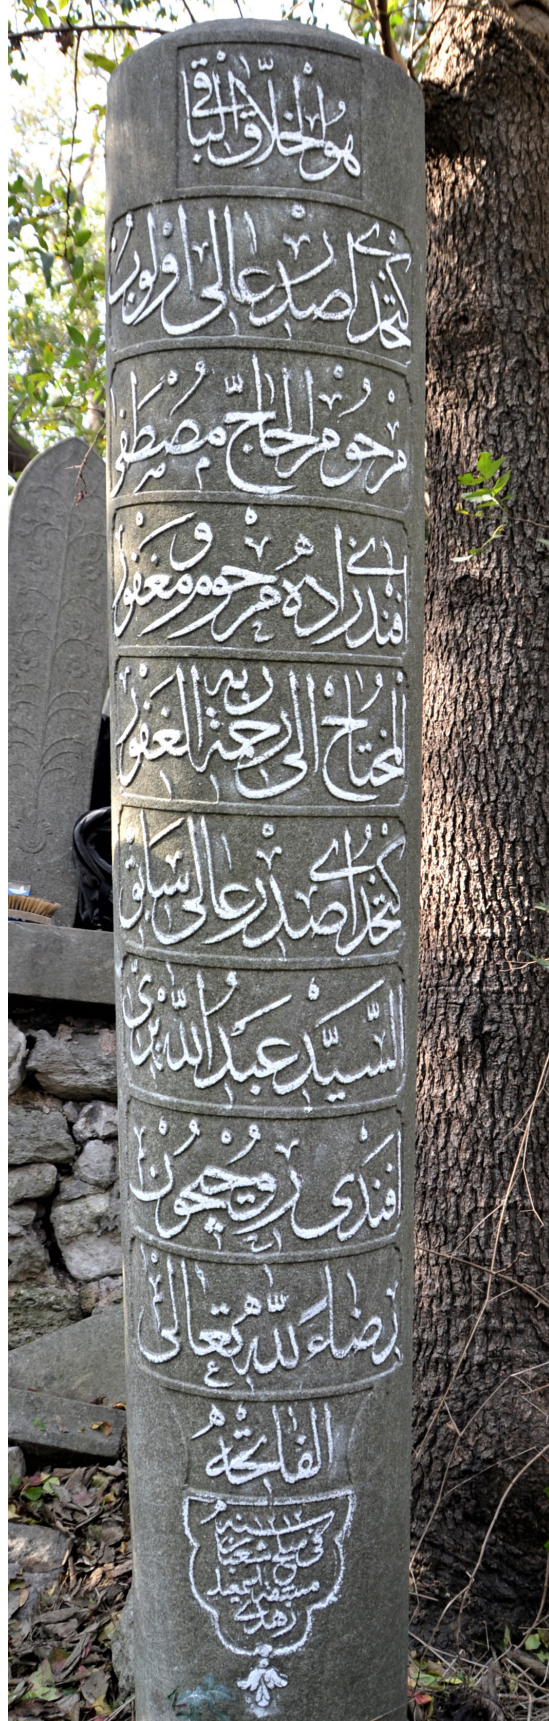 هو الخلاق الباقی
كتخدای صدر عالی اولوب
مرحوم الحاج مصطفی
افندی زاده مرحوم و مغفور
المحتاج الی رحمة ربه الغفور
كتخدای صدر عالی سابق
السيد عبد الله بری
افندی روحیچون
رضاء لله تعالی
الفاتحه
سنه ١٢١٢
فی سلخ شعبان
زهدی